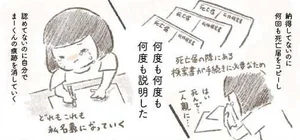 納得してないのに
何回も死亡届をコピーし
死亡届
死亡届
死亡届の隣にある
捜索書が手続きに必要なため
はんで
一人歩に…
何度も何度も
何度も説明した
認めてないのに自分で
まーくんの痕跡を消していく
どれもこれも
私名義になっていく